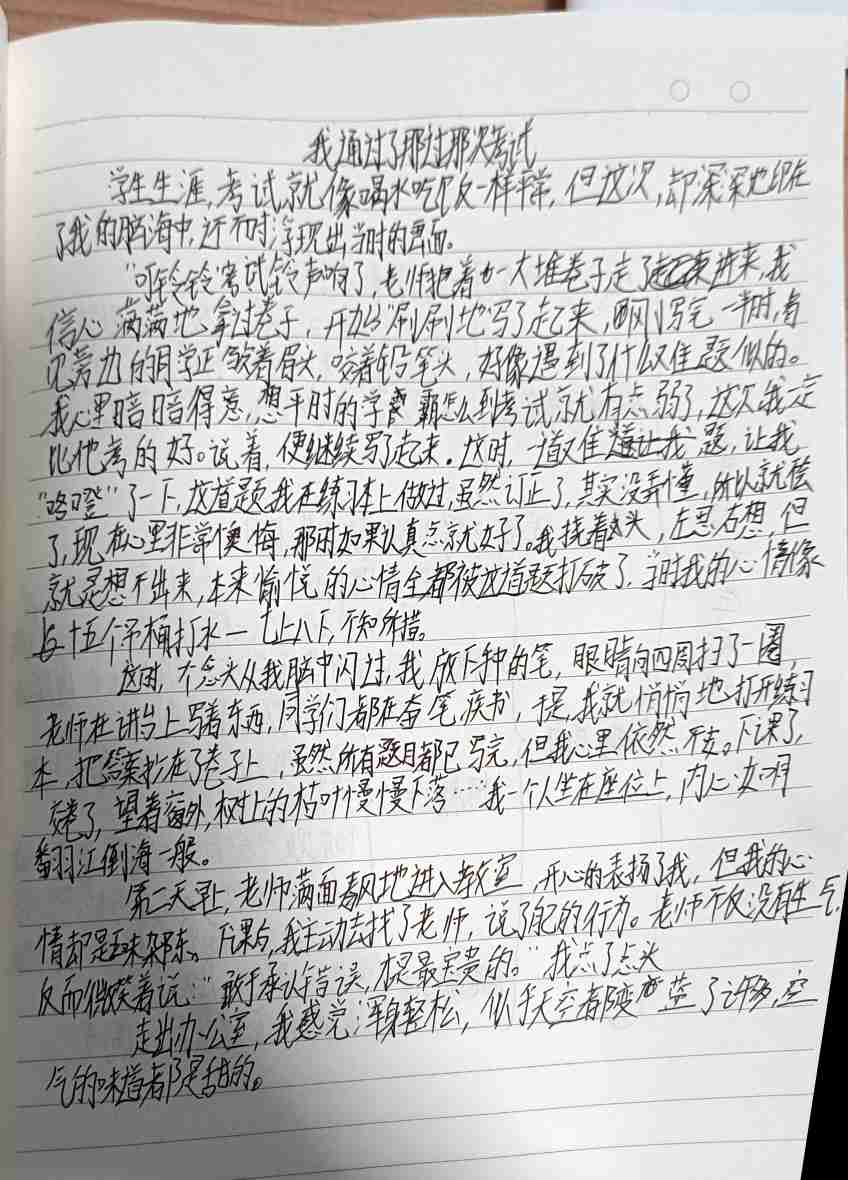 我通过了那过那次考试
学生生涯,考试就像喝水吃饭一样平常,但这次,却深深地印在
了我的脑海中,还不时浮现出当时的画面。
“叮铃铃”考试铃声响了,老师抱着一大堆卷子走了进来,我
信心满满地拿过卷子,开始“刷刷”地写了起来,刚写完一半时,看
见旁边的同学正皱着眉头,咬着铅笔头,好像遇到了什么难题似的。
我心里暗暗得意,想平时的学霸怎么到考试就有点弱了,这次我一定
比他考的好。说着,便继续写了起来。这时,一道难题,让我
“咯噔”了一下,这道题我在练习本上做过,虽然订正了,其实没弄懂,所以就忘
了,现在心里非常懊悔,那时如果认真点就好了。我挠着头,左思右想,但
就是想不出来,本来愉悦的心情全都被这道题打破了,当时我的心情像
十五个吊桶打水一七上八下,不知所措。
这时,一个念头从我脑中闪过,我放下手中的笔,眼睛向四周扫了一圈,
老师在讲台上写着东西,同学们都在奋笔疾书,于是,我就悄悄地打开练习
本,把答案抄在了卷子上,虽然所有题目都已写完,但我心里依然不安。下课了,
交卷了,望着窗外,树上的枯叶慢慢下落……我一个人坐在座位上,内心如同
翻江倒海一般。
第二天早上,老师满面春风地进入教室,开心的表扬了我,但我的心
情却是五味杂陈。下课后,我主动去找了老师,说了自己的行为。老师不仅没有生气,
反而微笑着说:“敢于承认错误,才是最宝贵的。”我点了点头
走出办公室,我感觉浑身轻松,似乎天空都变蓝了许多,空
气的味道都是甜的。